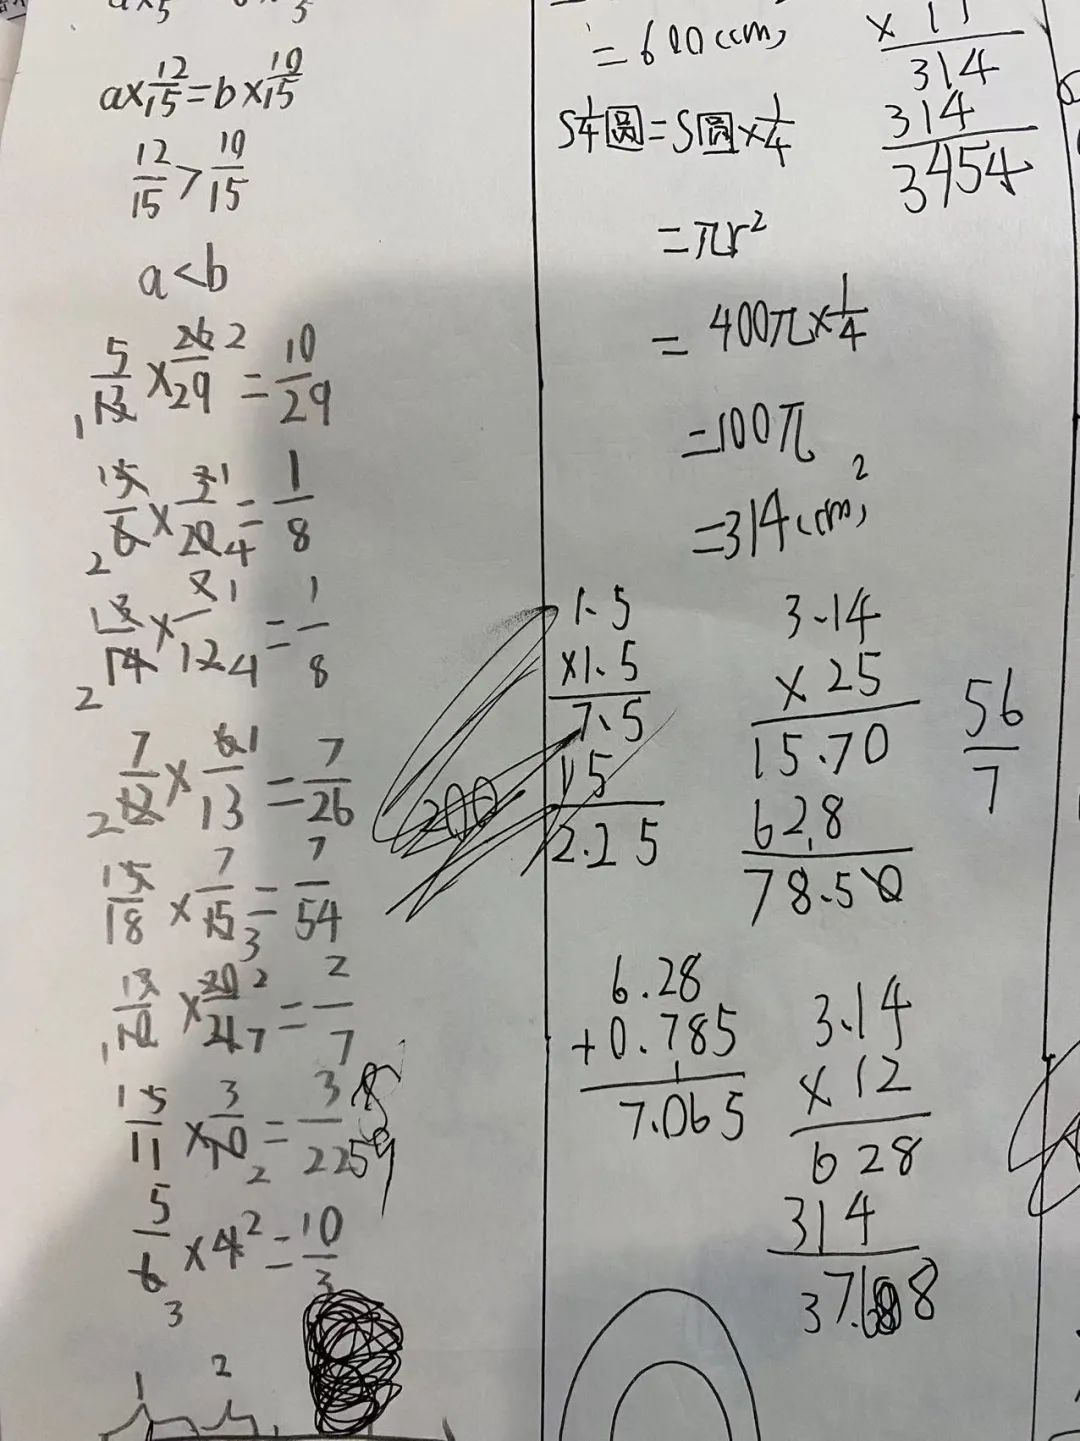 a×12/15=b×10/15
12/15>10/15
a<b
5/13×26/29=10/29
1 2
5/6×3/20=1/8
1 1 2 4
3/14×7/12=1/8
1 1 2 4
7/12×6/13=7/26
1 2
5/18×7/15=7/54
1 3
3/10×20/21=2/7
1 2 1 7
5/11×3/10=3/22
1 2
5/6×4=10/3
2 3
1 2
=600(cm)
S1/4圆=S圆×1/4
=πr²
=400π×1/4
=100π
=314(cm²)
314
314
3454
1.5
×1.5
7.5
15
2.25
200
3.14
×25
15.70
62.8
78.50
56/7
6.28
+0.785
1
7.065
3.14
×12
628
314
37.68